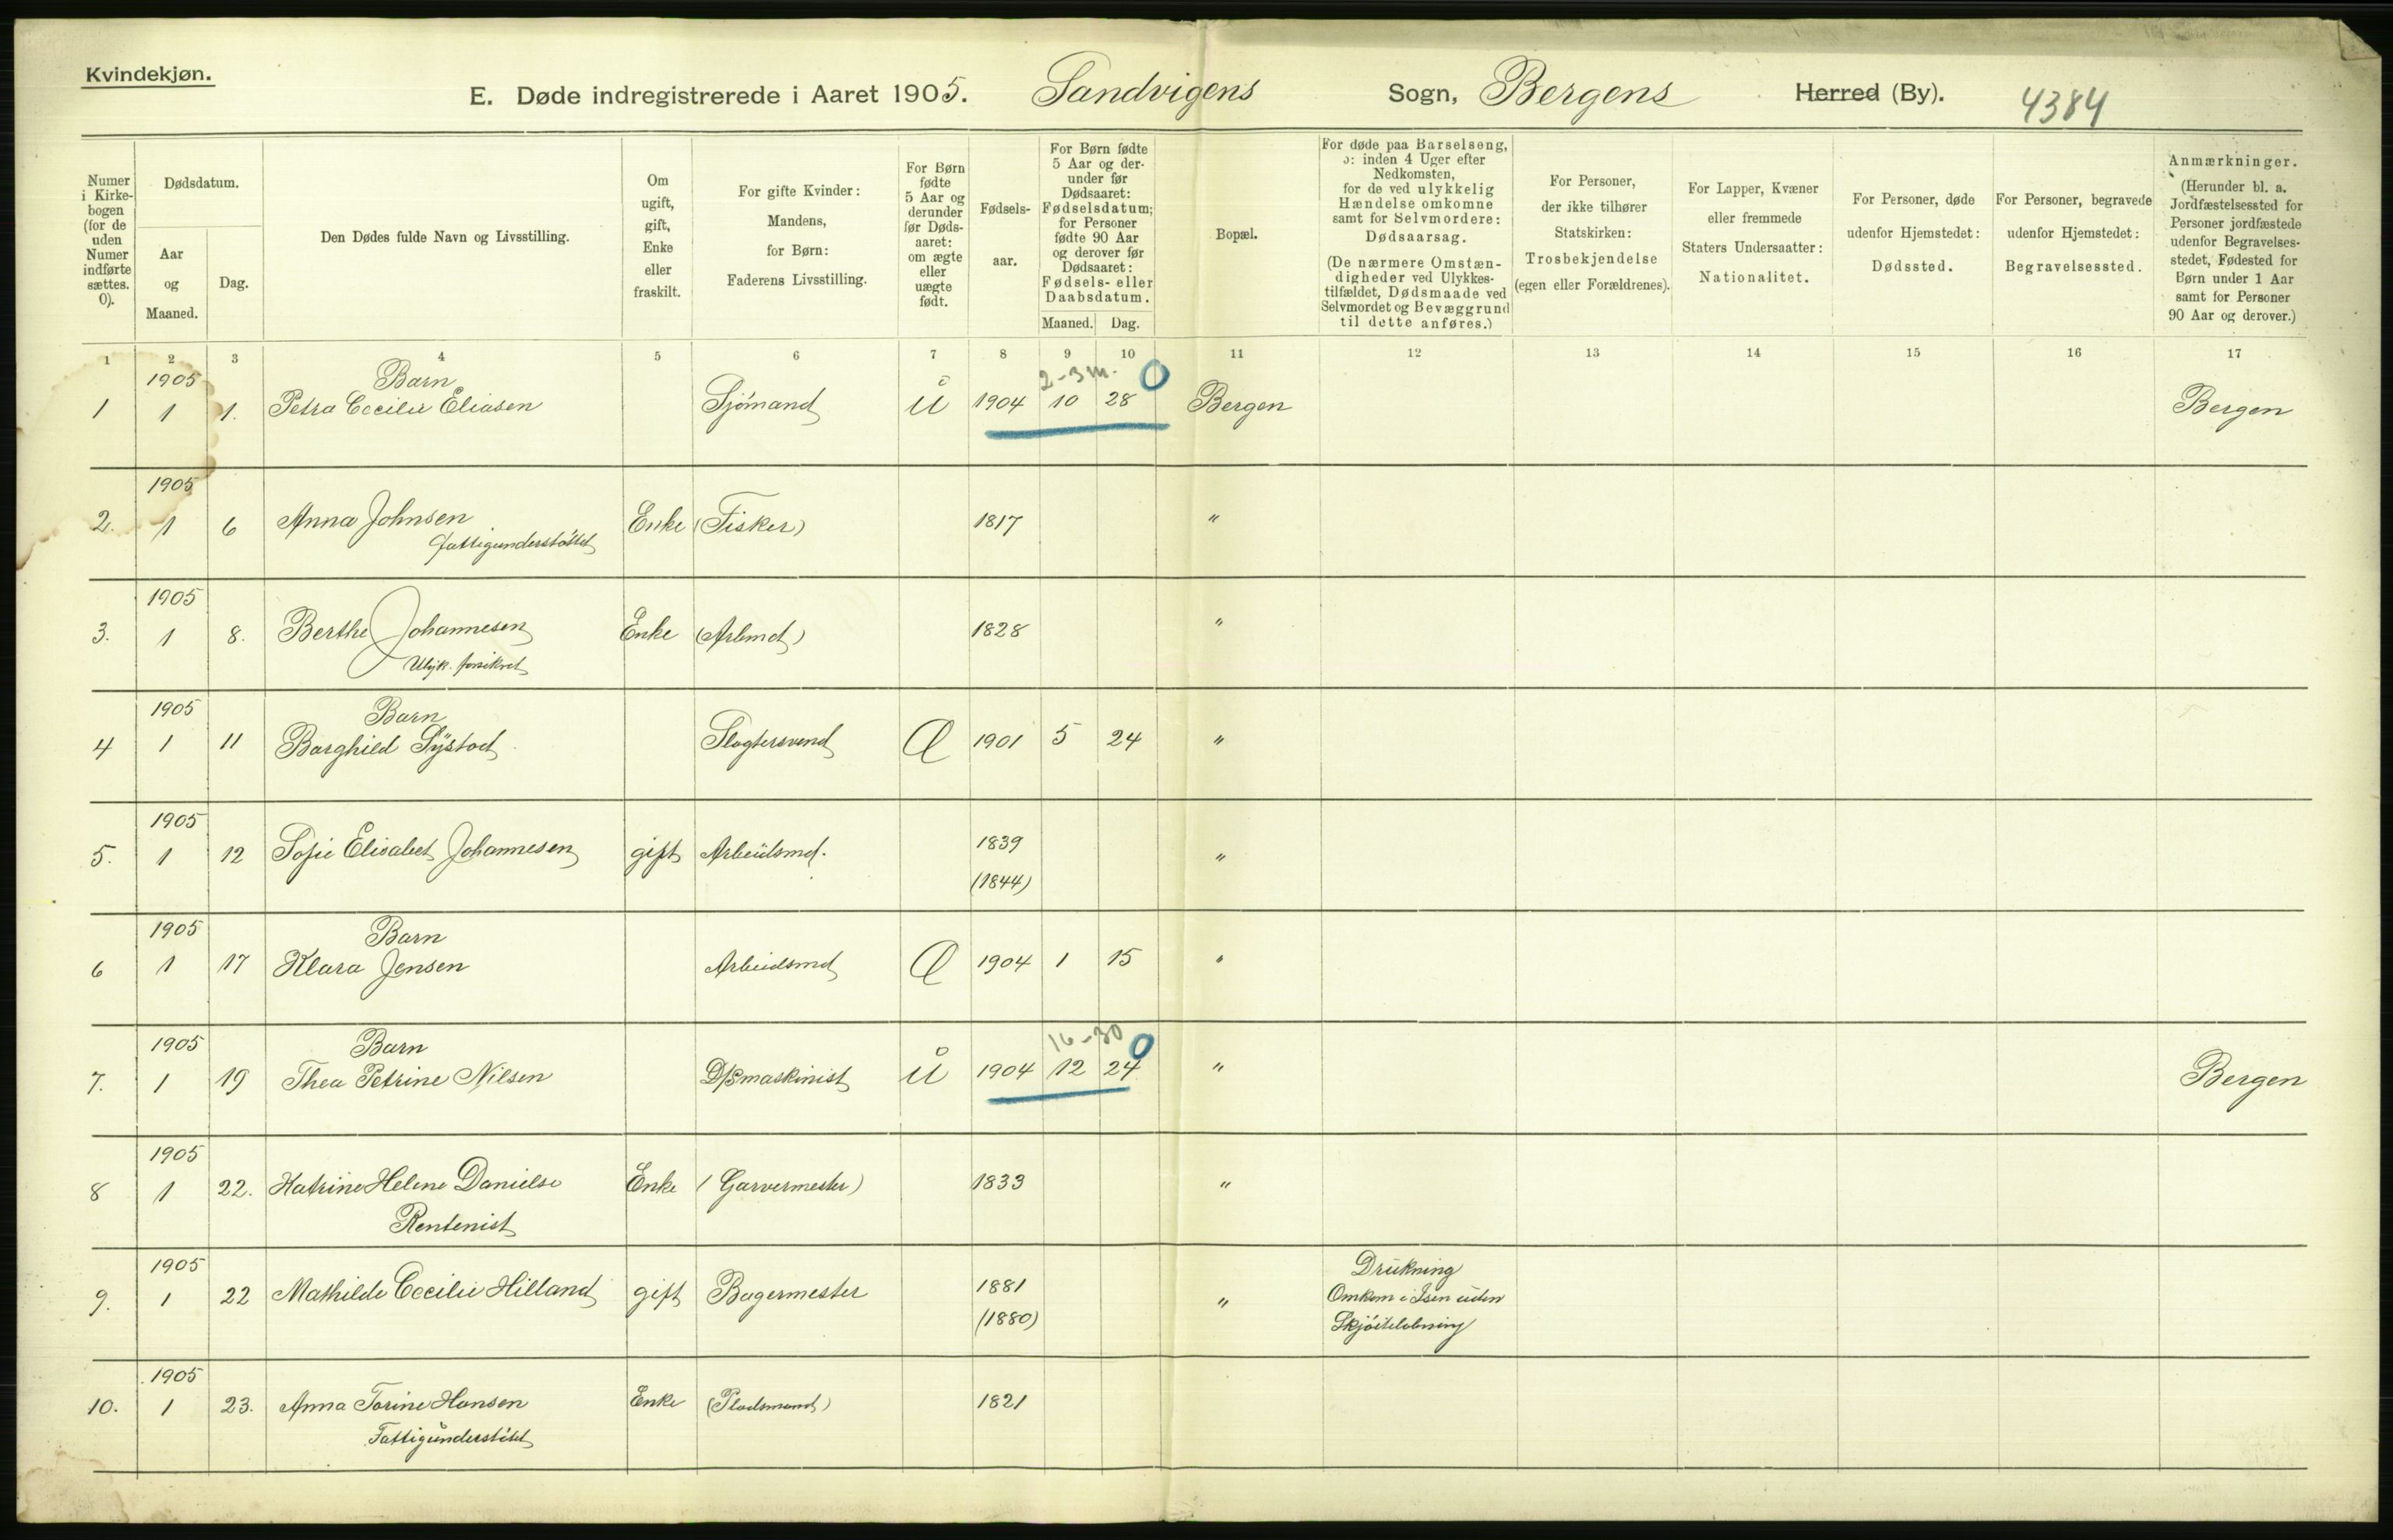 Kvindekjøn.
E. Døde indregistrerede i Aaret 1905. Sandvigens Sogn, Bergens Herred (By). 4384
Numer
i Kirke-
bogen
(for de
uden
Numer
indførte
sættes.
0).
Dødsdatum.
Aar
og
Maaned.
Dag.
Den Dødes fulde Navn og Livsstilling.
Om
ugift,
gift,
Enke
eller
fraskilt.
For gifte Kvinder:
Mandens,
for Børn:
Faderens Livsstilling.
For Børn
fødte
5 Aar og
derunder
før Døds-
aaret:
om ægte
eller
uægte
født.
Fødsels-
aar.
For Børn fødte
5 Aar og der-
under før
Dødsaaret:
Fødselsdatum;
for Personer
fødte 90 Aar
og derover før
Dødsaaret:
Fødsels- eller
Daabsdatum.
Maaned. Dag.
Bopæl.
For døde paa Barselseng,
ɔ: inden 4 Uger efter
Nedkomsten,
for de ved ulykkelig
Hændelse omkomne
samt for Selvmordere:
Dødsaarsag.
(De nærmere Omstæn-
digheder ved Ulykkes-
tilfældet, Dødsmaade ved
Selvmordet og Bevæggrund
til dette anføres.)
For Personer,
der ikke tilhører
Statskirken:
Trosbekjendelse
(egen eller Forældrenes).
For Lapper, Kvæner
eller fremmede
Staters Undersaatter:
Nationalitet.
For Personer, døde
udenfor Hjemstedet:
Dødssted.
For Personer, begravede
udenfor Hjemstedet:
Begravelsessted.
Anmærkninger.
(Herunder bl. a.
Jordfæstelsessted for
Personer jordfæstede
udenfor Begravelses-
stedet, Fødested for
Børn under 1 Aar
samt for Personer
90 Aar og derover.)
1 2 3 4 5 6 7 8 9 10 11 12 13 14 15 16 17
1905 Barn 2-3 m. 0
1 1 1. Petra Cecilie Eliasen Sjömand U 1904 10 28 Bergen Bergen
1905
2. 1 6 Anna Johnsen Enke (Fisker) 1817 "
fattigunderstöttet
1905
3. 1 8. Berthe Johannesen Enke (Arbmd) 1828 "
Ulyk. forsikret
1905 Barn
4 1 11 Borghild Systad Slagtersvend Æ 1901 5 24 "
1905
5. 1 12 Sofie Elisabet Johannesen gift Arbeidsmd. 1839 "
(1844)
1905 Barn
6 1 17 Klara Jensen Arbeidsmd Æ 1904 1 15 "
1905 Barn 16-30 0
7. 1 19 Thea Petrine Nilsen D/smaskinist U 1904 12 24 " Bergen
1905
8 1 22. Katrine Helene Danielse Enke (Garvermester) 1833 "
Rentenist
1905 Drukning
9. 1 22 Mathilde Cecilie Hilland gift Bagermester 1881 " Omkom i Isen uden
(1880) Skjöiteløbning
1905
10. 1 23. Anna Torine Hansen Enke (Pladsmand) 1821
Fattigunderstöttet